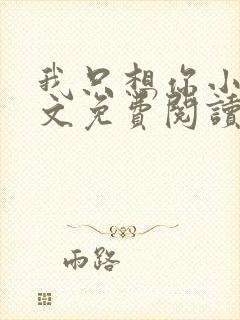 我只想你小
文免費閱讀
雨路